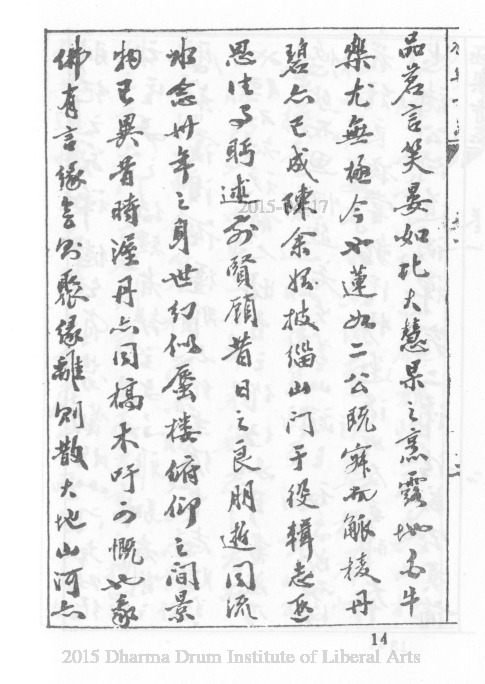 品茗言笑晏如比大慧杲之烹露地白牛
樂尤無極今也蓮如二公既寂而觚棱丹
碧亦已成陳余雖披緇山门于役輯志逐
思往事眄述前賢顧昔日之良朋逝同流
水念卅年之身世幻似蜃楼俯仰之间景
物已異昔時渥丹亦同槁木吁可慨也哉
佛有言缘会則聚缘離則散大地山河亦
14
2015 Dharma Drum Institute of Liberal Arts